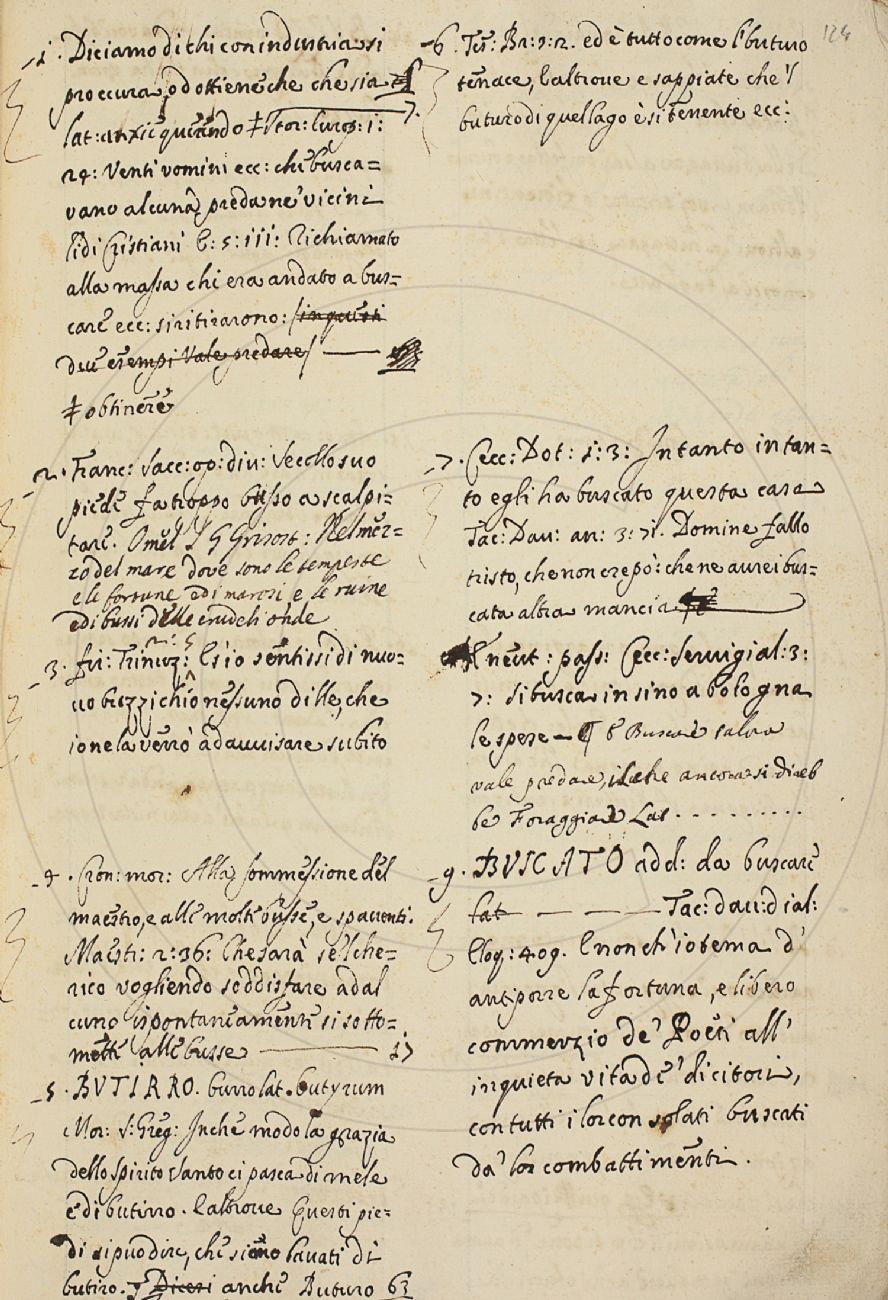 124
1. Diciamo di chi con industria si
proccura, od ottiene che che sia
lat: anxiè quærendo ‡ Stor: Europ: 1:
24: Venti uomini ecc: che busca=
vano alcuna preda ne' vicini
lidi Cristiani E: 5: 111: Richiamato
alla massa chi era andato a bus=
care ecc: si ritirarono: (in questi
due esempi vale predare) —
‡ obtinere
2. Franc: Sacc: op: div: Se collo suo
piede fa troppo busso a scalpi=
tare. Omel S G Grisost: Nel mez=
zo del mare dove sono le tempeste
e le fortune e di marosi e le ruine
e di bussi delle crudeli onde
3. fir: Trinuz: 2: 5 E s'io sentissi di nuo=
vo buzzichio nessuno dille, che
io ne la verrò ad avvisare subito
4. Cron: mor: Alla sommessione del
maestro, e alle molte busse, e spaventi.
Maestr: 2: 36: Che sarà se 'l che=
rico vogliendo soddisfare ad al
cuno ispontaneamente si sotto=
mette alle busse — 17
5. BUTIRRO. burro lat. butyrum
Mor: S: Greg: In che modo la grazia
dello Spirito Santo ci pasca di mele
e di butirro. E altrove Questi pie=
di si può dire, che sieno lavati di
butiro. Dicesi anche Buturo 63
6. Tes: Br: 2: 2. ed è tutto come l' buturo
tenace, E altrove e sappiate che 'l
buturo di quel lago è sì tenente ecc:
7. Cecc: Dot: 1: 3: In tanto in tan=
to egli ha buscato questa casa
Tac: Dav: an: 3: 71. Domine fallo
tristo, che non crepò: che ne aurei bus=
cata altra mancia
neut: pass: Cecc: Servigial: 3:
7: Si busca insino a bologna
le spese — ¶ E Buscare talora
vale predare, il che ancora si direb
be Foraggiare Lat. . . . . . . . . .
9. BUSCATO add: da buscare
lat — — — Tac: dav: dial:
Eloq: 409. E non ch' io tema d'
antiporre la fortuna, e libero
commerzio de' Poeti all'
inquieta vita de' dicitori,
con tutti i lor consolati buscati
da' lor combattimenti.